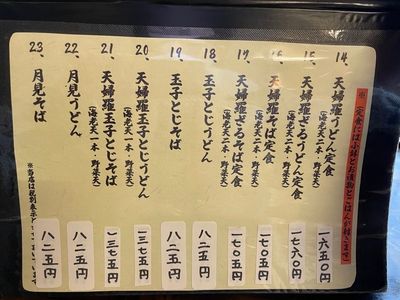 ※(定食には小鉢とお漬物とごはんが付きます)
14、天婦羅うどん定食
(海老天二本・野菜天)
一六五〇円
15、天婦羅ざるうどん定食
(海老天二本・野菜天)
一七六〇円
16、天婦羅そば定食
(海老天二本・野菜天)
一七〇五円
17、天婦羅ざるそば定食
(海老天二本・野菜天)
一七〇五円
18、玉子とじうどん
八二五円
19、玉子とじそば
八二五円
20、天婦羅玉子とじうどん
(海老天一本・野菜天)
一三七五円
21、天婦羅玉子とじそば
(海老天一本・野菜天)
一三七五円
22、月見うどん
八二五円
23、月見そば
八二五円
※当店は税別表示